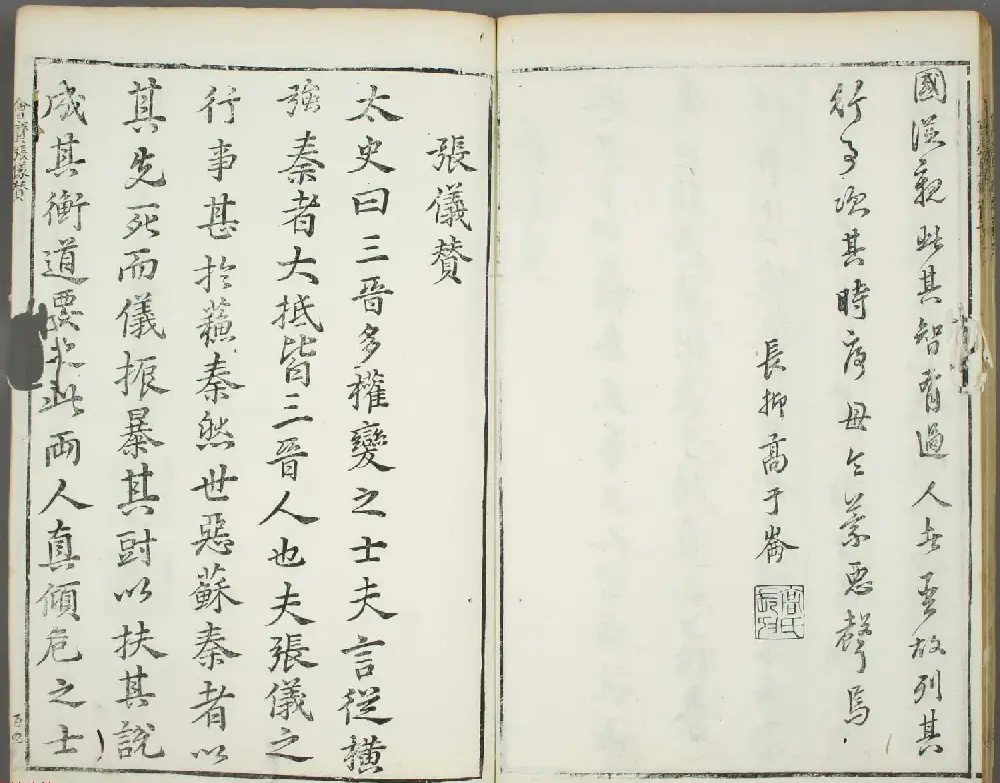 國從親此其智有過人者吾故列其
行事次其時序毋令蒙惡聲焉
長柳高于崙
張儀贊
太史曰三晉多權變之士夫言從橫
強秦者大抵皆三晉人也夫張儀之
行事甚於蘓秦然世惡蘇秦者以
其先死而儀振暴其𭁵以扶其說
成其衡道要之此兩人真傾危之士